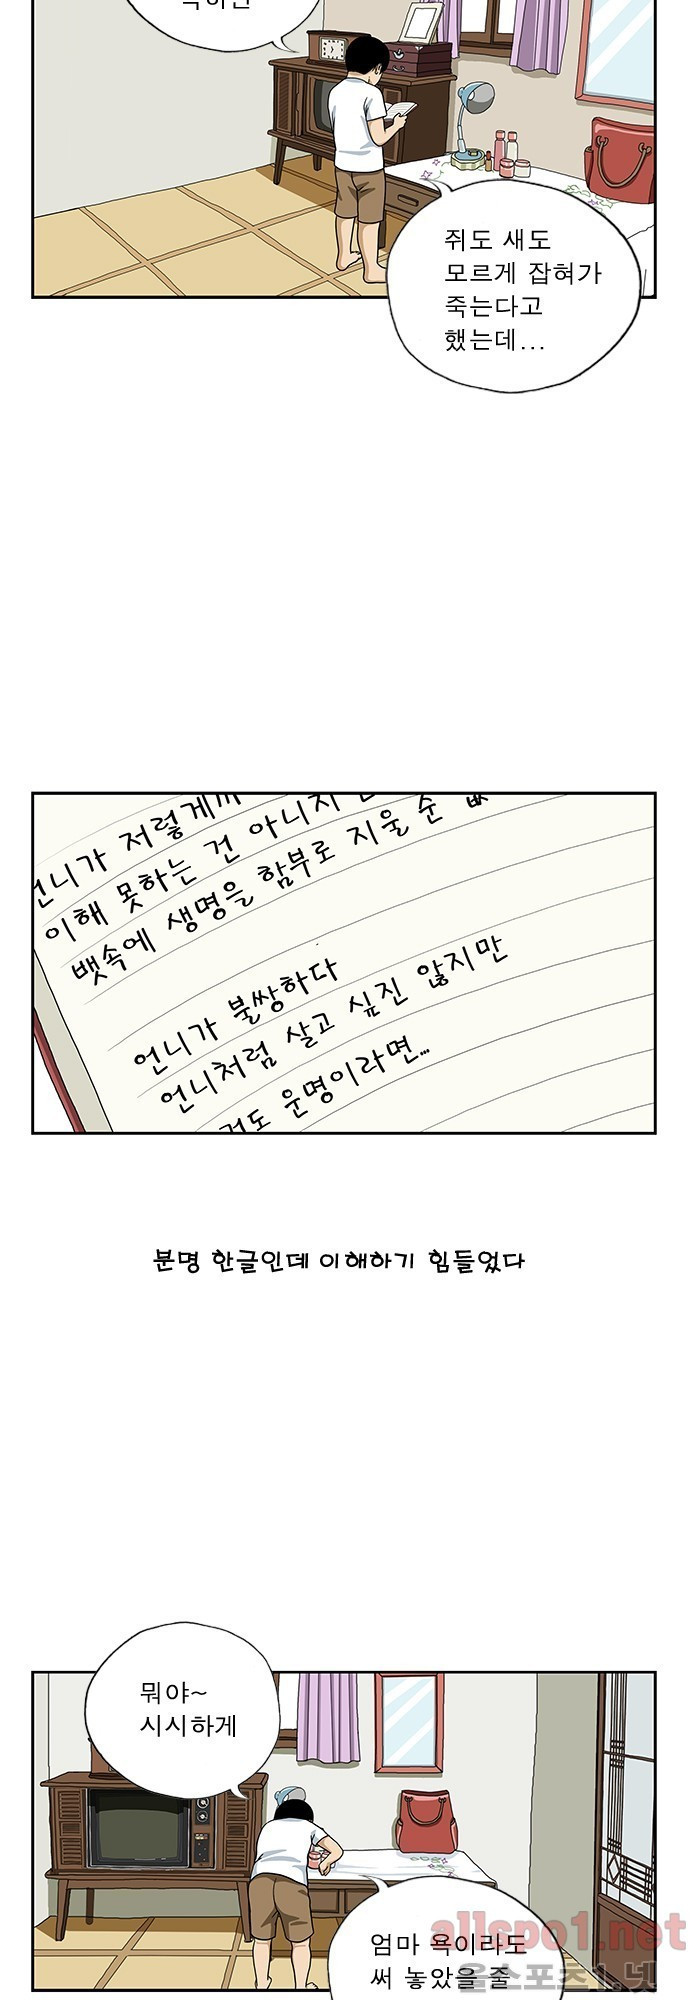 쥐도 새도
모르게 잡혀가
죽는다고
했는데...
언니가 저렇게까
이해 못하는 건 아니지
뱃속에 생명을 함부로 지울 순 없
언니가 불쌍하다
언니처럼 살고 싶진 않지만
운명이라면...
분명 한글인데 이해하기 힘들었다
뭐야~
시시하게
엄마 욕이라도
써 놓았을 줄
allspo1.net
올스포츠1.넷